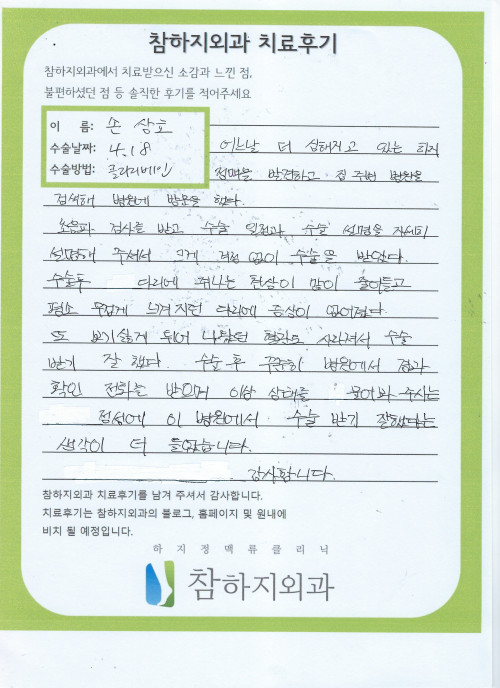 참하지외과 치료후기
참하지외과에서 치료받으신 소감과 느낀 점,
불편하셨던 점 등 솔직한 후기를 적어주세요
이 름: 손 상호
수술날짜: 4.18
수술방법: 클라리베인
어느날 더 심해지고 있는 하지
정맥을 발견하고 집 주변 병원을
검색해 병원에 방문을 했다.
초음파 검사를 받고 수술 일정과 수술 설명을 자세히
설명해 주셔서 크게 걱정 없이 수술을 받았다.
수술후 다리에 쥐나는 현상이 많이 줄어들고
평소 무겁게 느껴지던 다리에 증상이 없어졌다.
또 보기싫게 튀어 나왔던 혈관도 사라져서 수술
받기 잘 했다. 수술 후 꾸준히 병원에서 경과
확인 전화를 받으며 이상 상태를 물어봐 주시는
점성에 이 병원에서 수술 받기 잘했다는
생각이 더 들었습니다.
감사합니다.
참하지외과 치료후기를 남겨 주셔서 감사합니다.
치료후기는 참하지외과의 블로그, 홈페이지 및 원내에
비치 될 예정입니다.
하지정맥류클리닉
참하지외과